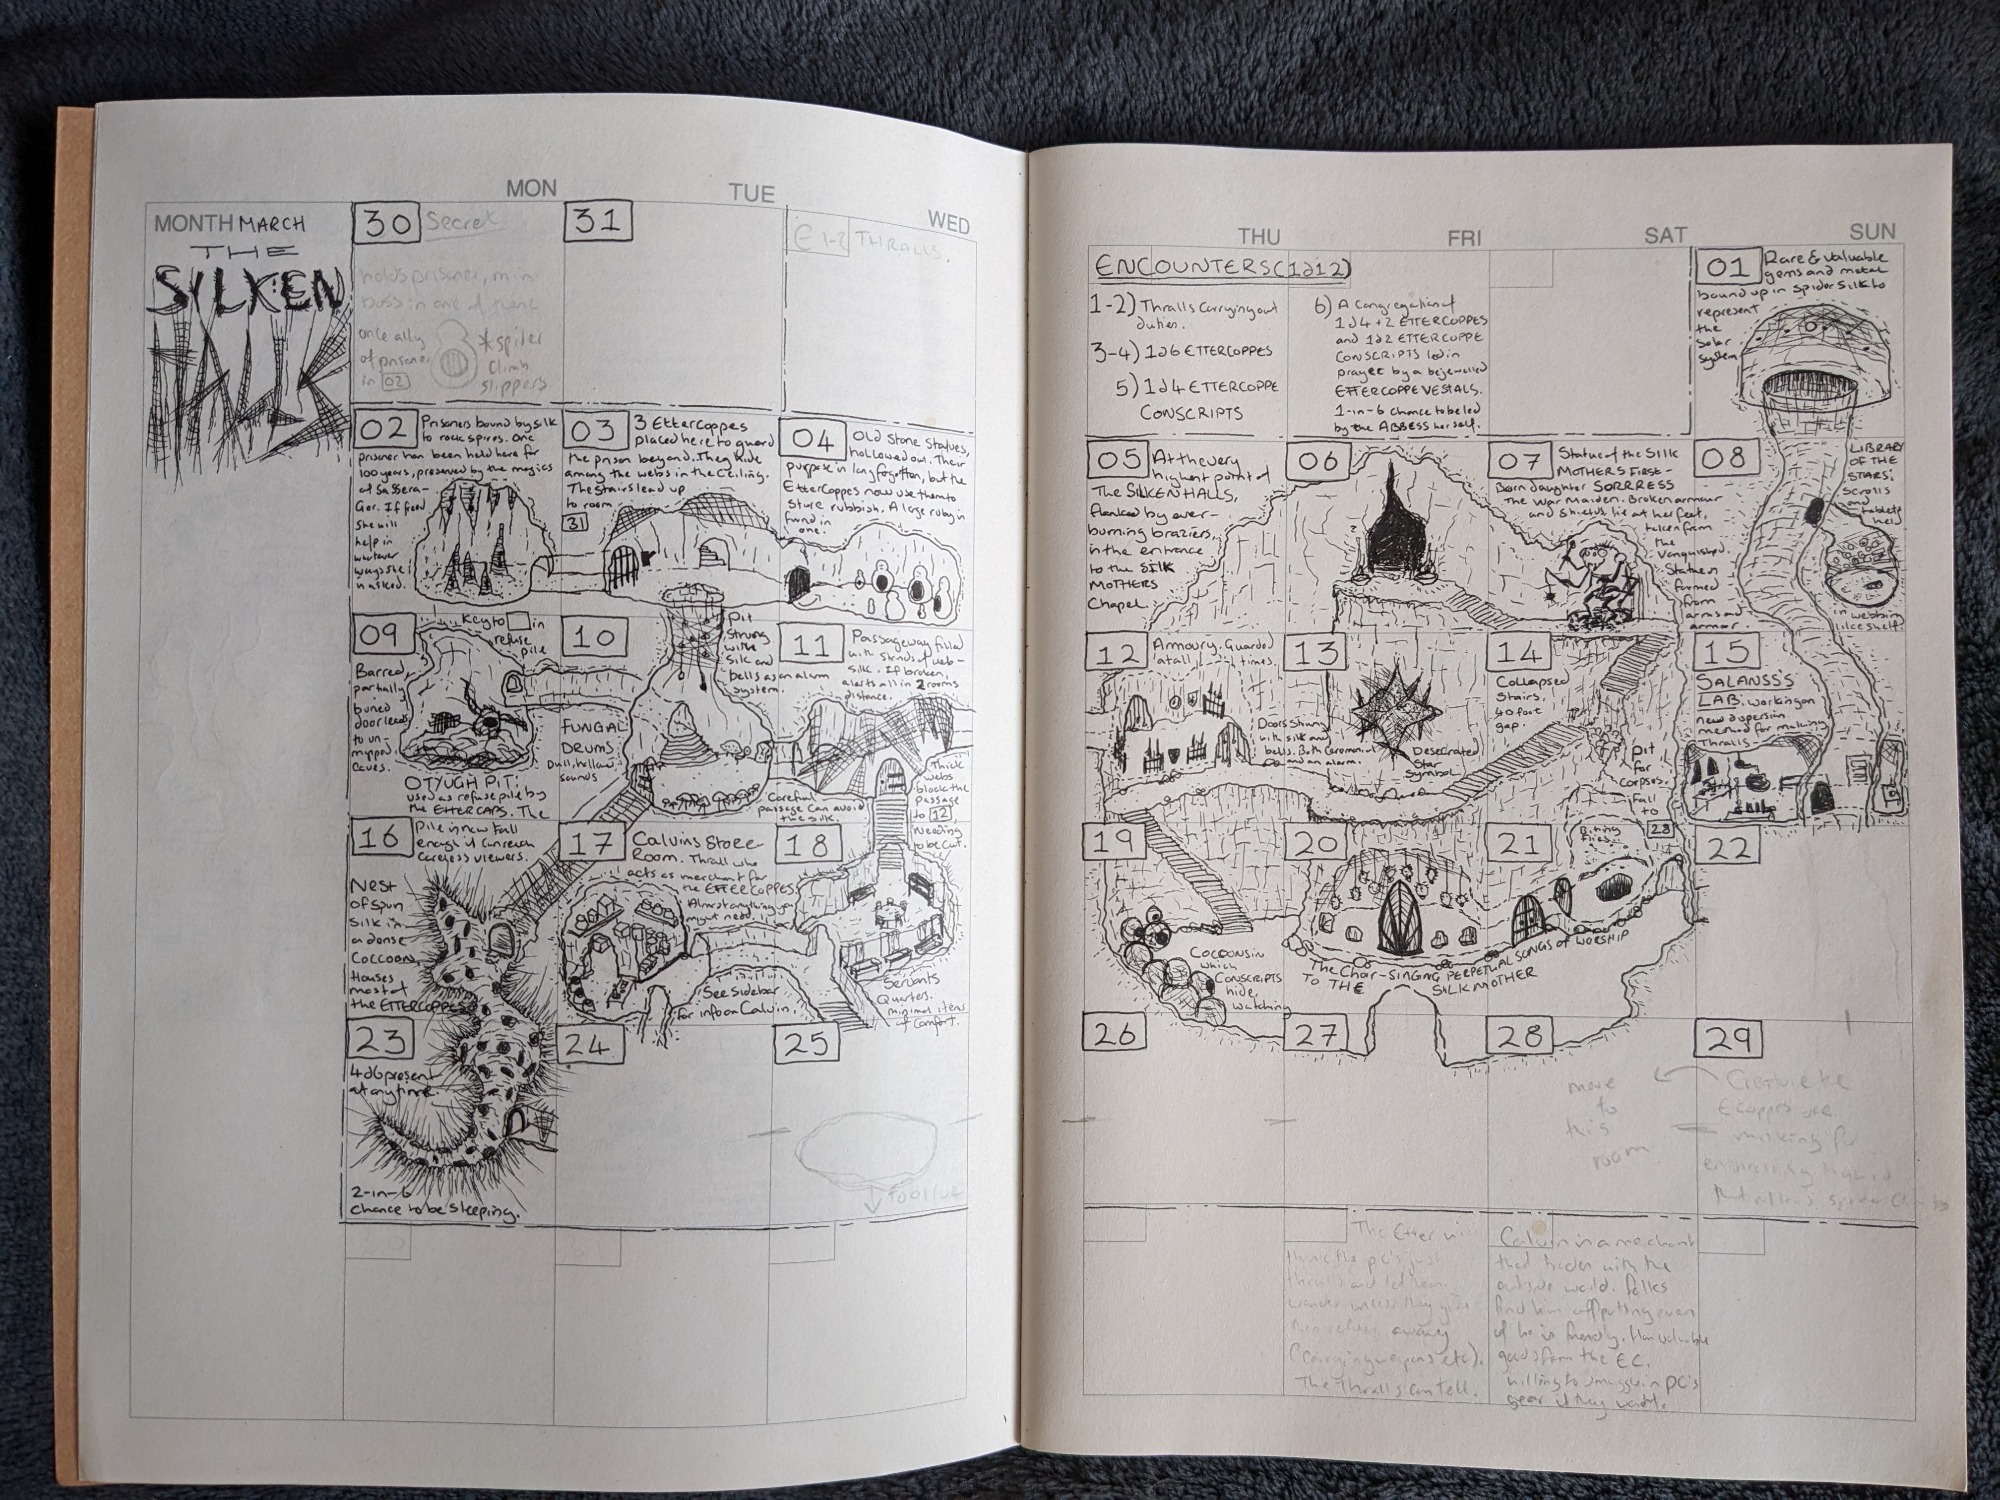 MON
TUE
WED
MONTH MARCH
THE
SILKEN
30
Secret
holds prisoner, mini
boss in one of these
once ally
of prisoner
in 02
*spider
Climb
slippers
31
E 1-2 THRALLS.
02
Prisoners bound by silk
to rock spires. One
prisoner has been held here for
100 years, preserved by the magics
of Sassera-
Gor. If freed
she will
help in
whatever
ways she
is asked.
03
3 Ettercoppes
placed here to guard
the prison beyond. They hide
among the webs in the Ceiling.
The stairs lead up
to room
31
04
Old Stone Statues,
hollowed out. Their
purpose is long forgotten, but the
Ettercoppes now use them to
store rubbish. A large ruby is
found in
one.
09
Key to in
refuse
pile
Barred,
partially
buried
door leads
to un-
mapped
caves.
OTYUGH PIT:
used as refuse pile by
the ETTERCAPS. The
10
FUNGAL
DRUMS
Dull, hollow
sounds
Pit
Strung
with
silk and
bells as an alarm
system.
11
Passageway filled
with strands of web-
silk. If broken,
alerts all in 2 rooms
distance.
Careful
passage can avoid
the silk.
Thick
webs
block the
passage
to 12,
needing
to be cut.
16
Pile is now tall
enough it can reach
careless viewers.
Nest
of spun
silk in
a dense
Coccoon,
Houses
most of
the ETTERCOPPES
17
Calvins Store
Room. Thrall who
acts as merchant for
the ETTERCOPPES.
Almost anything you
might need.
See Sidebar
for info on Calvin.
18
Servants
Quarters.
minimal items
of comfort.
23
4d6 present
at any time.
2-in-6
chance to be sleeping.
24
25
THU
FRI
SAT
SUN
ENCOUNTERS (1d12)
1-2) Thralls Carrying out
duties.
3-4) 1d6 ETTERCOPPES
5) 1d4 ETTERCOPPE
CONSCRIPTS
6) A Congregation of
1d4+2 ETTERCOPPES
and 1d2 ETTERCOPPE
CONSCRIPTS led in
prayer by a bejewelled
ETTERCOPPE VESTALS.
1-in-6 chance to be led
by the ABBESS herself.
01
Rare & valuable
gems and metal
bound up in spider silk to
represent
the
Solar
System
05
At the very
highest point of
The SILKEN HALLS,
flanked by ever-
burning braziers,
is the entrance
to the SILK
MOTHERS
Chapel.
06
07
Statue of the SILK
MOTHERS First-
Born daughter SORRRESS
The War Maiden. Broken armour
and shields lie at her feet,
taken from
the
Vanquished.
Statue is
formed
from
arms and
armor.
08
LIBRARY
OF THE
STARS:
Scrolls
and
tablets
held
in webbing
like shelf.
12
Armoury. Guarded
at all times.
Doors Strung
with silk and
bells. Both Ceremonial
and an alarm.
13
Desecrated
Star
Symbol
14
Collapsed
Stairs.
40 foot
gap.
Pit
for
Corpses.
Fall
to
28
15
SALANSS'S
LAB. working on
new dispersion
method for making
Thralls
19
Cocoons in
which
CONSCRIPTS
hide,
watching
20
The Choir-SINGING PERPETUAL SONGS OF WORSHIP
TO THE SILK MOTHER
21
Biting
Flies
22
26
27
28
move
to
this
room
29
Creature the
are
milking for
The Etter
think the PC's just
thralls and let them
wander unless they give
themselves away
(Carrying weapons etc).
The Thralls can tell.
Calvin is a merchant
that trades with the
outside world. folks
find him offputting even
if he is friendly. Has valuable
goods from the EC.
willing to smuggle in PC's
gear if they want.